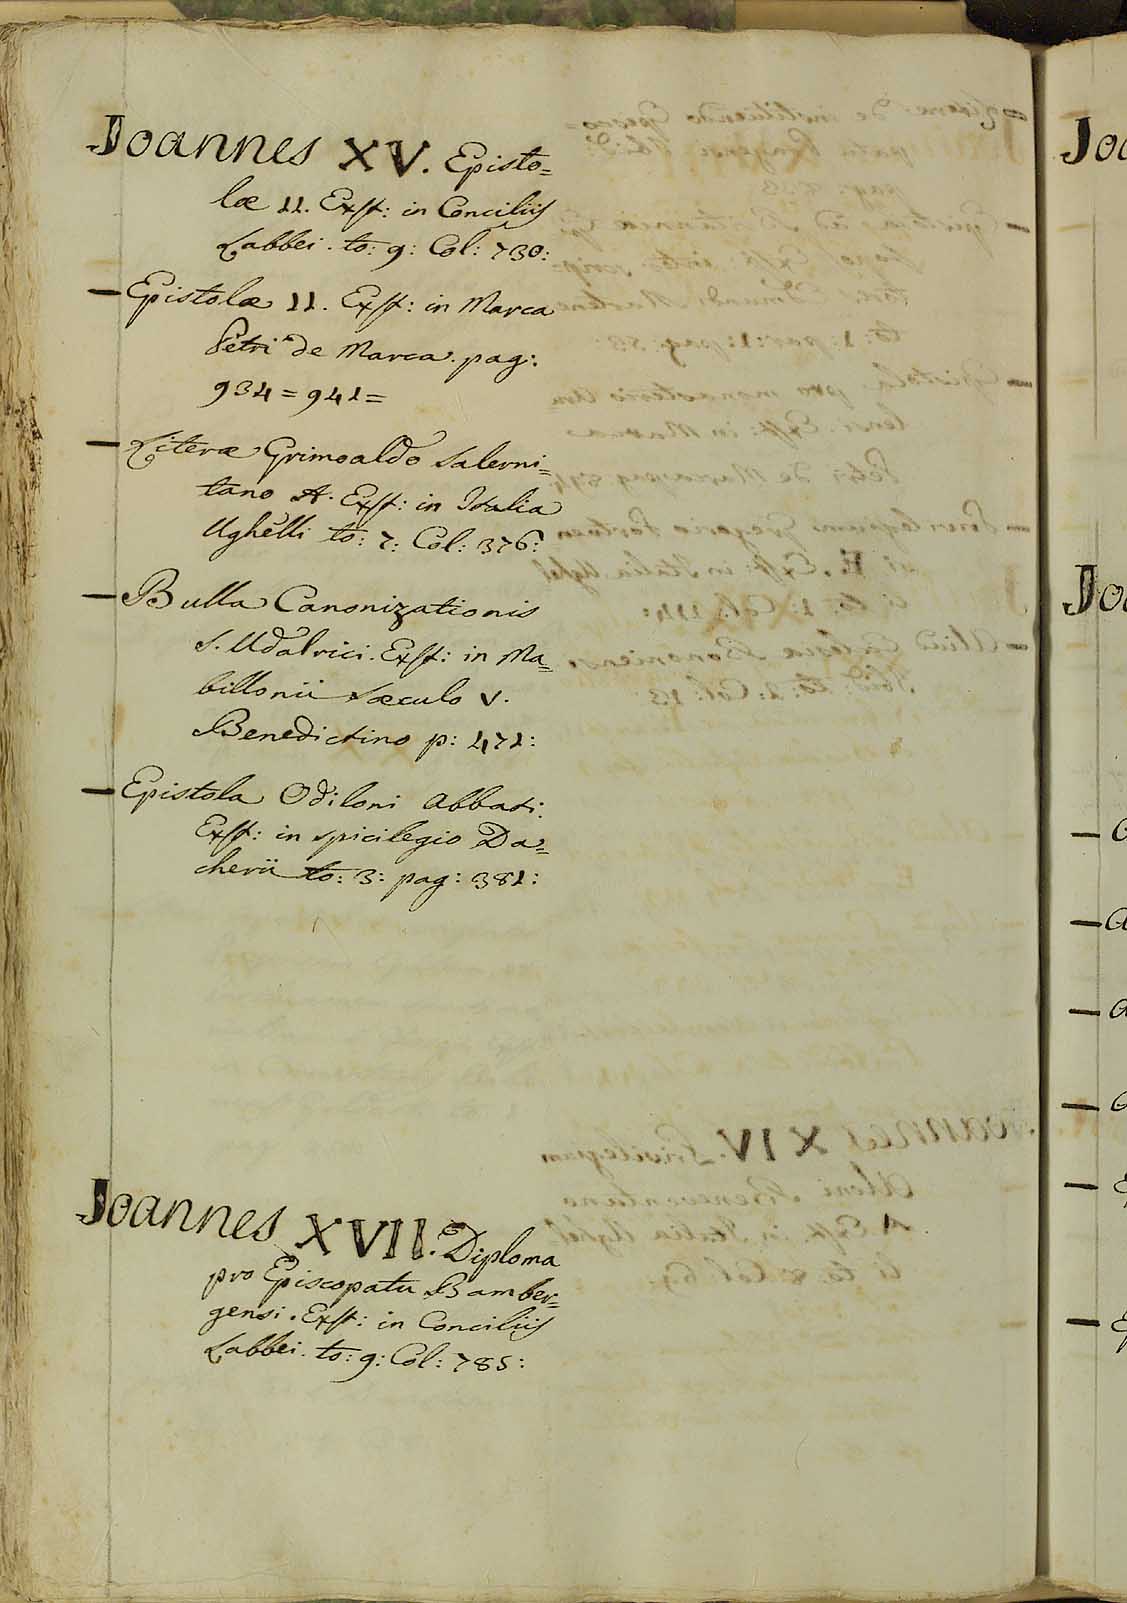 Joannes XV. Episto=
læ 11. Exst: in Conciliis
Labbei. to: 9: Col: 730:
— Epistolæ 11. Exst: in Marca
Petri de Marca. pag:
934 = 941 =
— Literæ Grimoaldo Salerni=
tano A. Exst: in Italia
Ughelli to: 7: Col: 376:
— Bulla Canonizationis
S. Udalrici. Exst: in Ma=
billonii sæculo V.
Benedictino p: 471:
— Epistola Odiloni Abbati.
Exst: in spicilegio Da=
cherii to: 3: pag: 381:
Joannes XVII. Diploma
pro Episcopatu Bamber=
gensi. Exst: in Conciliis
Labbei. to: 9: Col: 785: